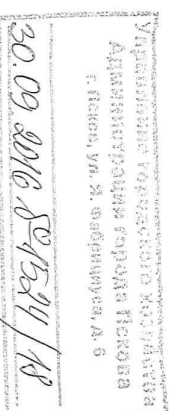 Управление городского хозяйства
Администрации города Пскова
г. Псков, ул. Я. Фабрициуса д. 6
30.09.2016 № 1574/18